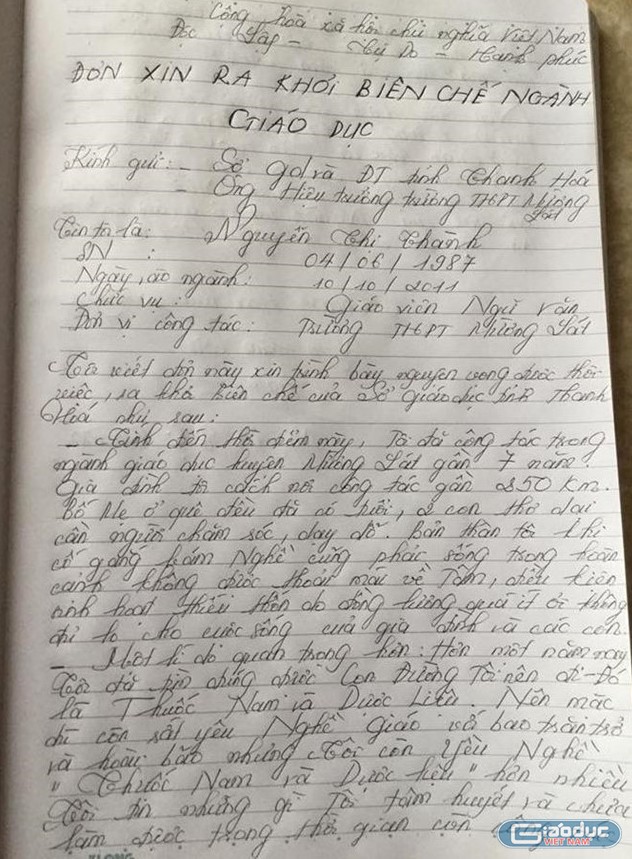 Cộng hoà xã hội chủ nghĩa Việt Nam
Độc Lập - Tự Do - Hạnh phúc
ĐƠN XIN RA KHỎI BIÊN CHẾ NGÀNH
GIÁO DỤC
Kính gửi: - Sở gd và ĐT tỉnh Thanh Hoá
- Ông Hiệu trưởng trường THPT Mường
Lát
Tên tôi là: Nguyễn Chí Thành
SN : 04/06/1987
Ngày vào ngành: 10/10/2011
Chức vụ : Giáo viên Ngữ văn
Đơn vị công tác: Trường THPT Mường Lát
Tôi viết đơn này xin trình bày nguyện vọng được thôi
việc, ra khỏi biên chế của Sở giáo dục tỉnh Thanh
Hoá như sau:
- Tính đến thời điểm này, Tôi đã công tác trong
ngành giáo dục huyện Mường Lát gần 7 năm.
Gia đình tôi cách nơi công tác gần 250 km.
Bố Mẹ ở quê đều đã có tuổi, 2 con thơ dại
cần người chăm sóc, dạy dỗ. Bản thân tôi khi
cố gắng bám Nghề cũng phải sống trong hoàn
cảnh không được thoải mái về Tâm, điều kiện
sinh hoạt thiếu thốn do đồng lương quá ít ỏi không
đủ lo cho cuộc sống của gia đình và các con.
- Một lí do quan trọng hơn: Hơn một năm nay
Tôi đã tin chứng được Con Đường Tôi nên đi - Đó
là Thuốc Nam và Dược Liệu. Nên mặc
dù còn rất yêu Nghề giáo với bao trăn trở
và hoài bão nhưng Tôi còn yêu Nghề
" Thuốc Nam và Dược liệu " hơn nhiều
Tôi tin những gì Tôi tâm huyết và chưa
làm được trong thời gian còn
Giáodục
VIỆT NAM